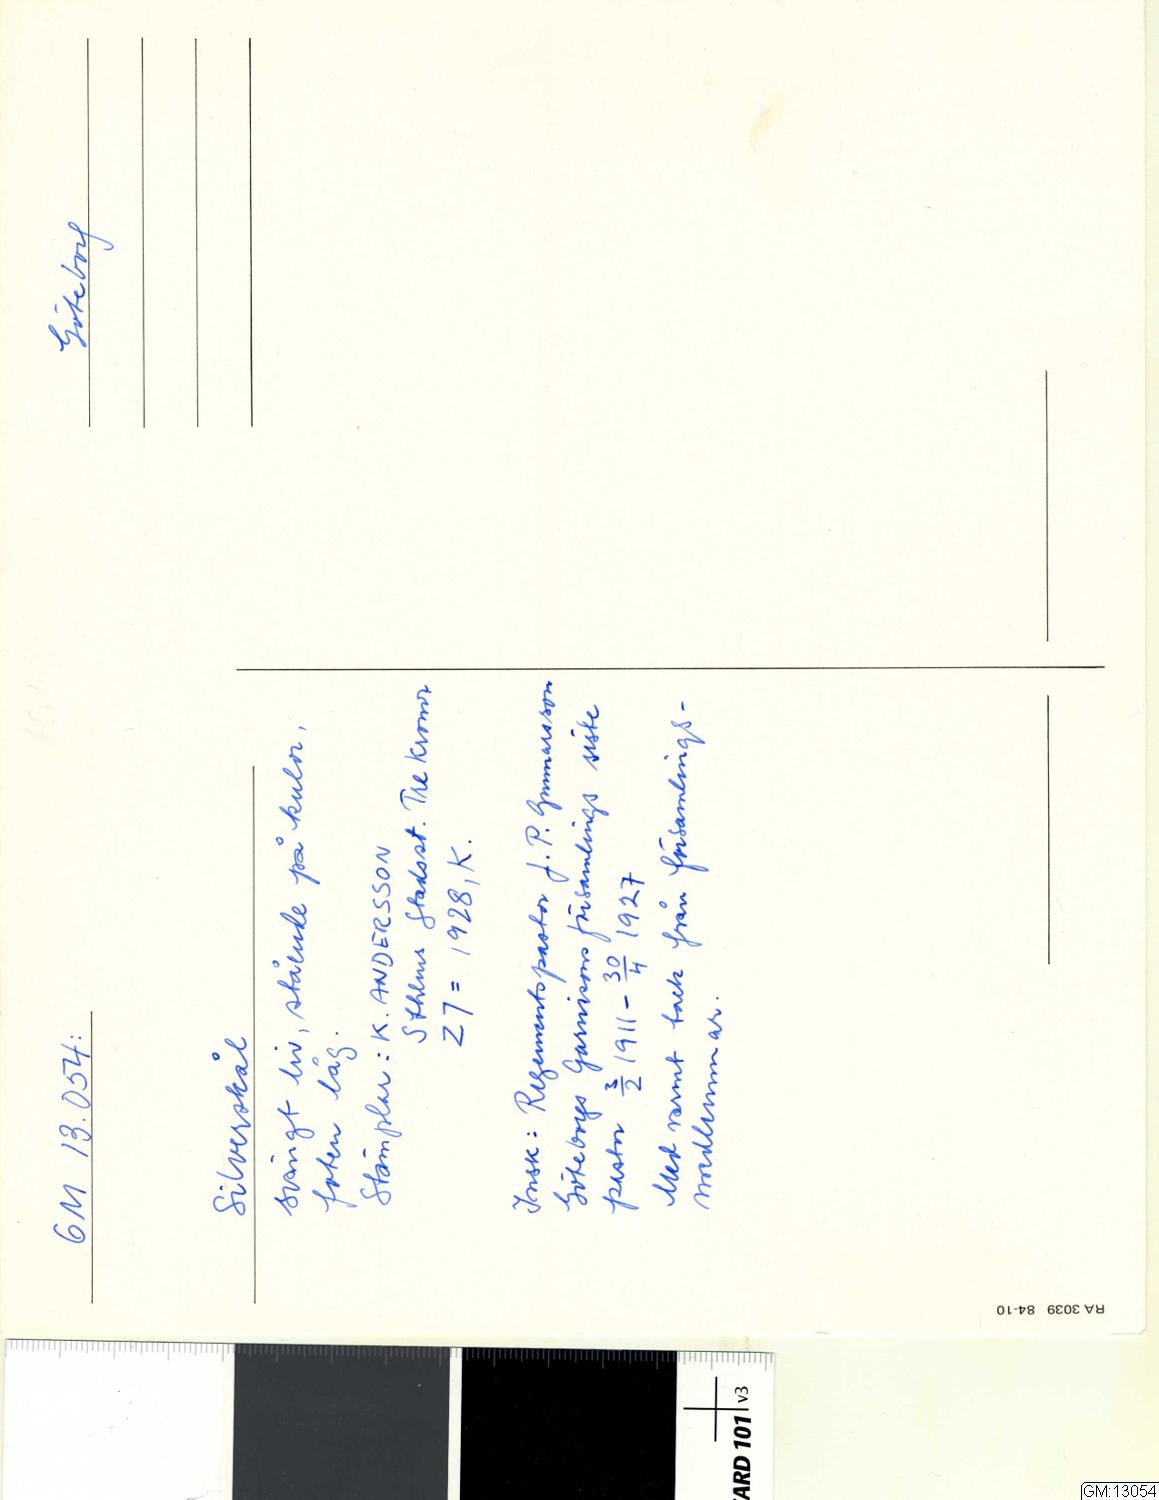 GM 13.054:
Göteborg
Silverskål
svängt liv, stående på kulor,
foten låg.
Stämplar: K. ANDERSSON
Sthlms Stadsst. Tre Kronor
Z7 = 1928, K.
Insk: Regementspastor J. P. Gunnarsson
Göteborgs Garnisons församlings siste
pastor 3/2 1911 - 30/4 1927
Med varmt tack från församlings-
medlemmar.
RA 3039 84-10
ARD 101 v3
GM:13054